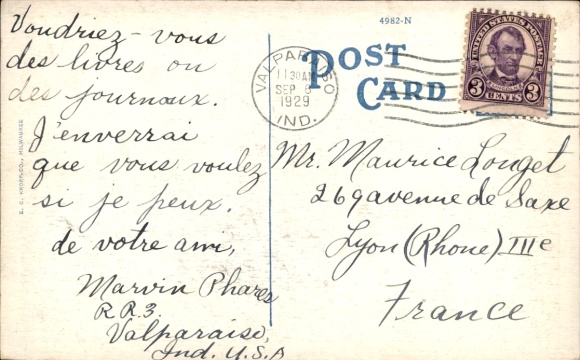 Voudriez-vous
des livres ou
des journaux.
J'enverrai
que vous voulez
si je peux.
de votre ami,
Marvin Phares
R.R.3.
Valparaiso,
Ind. U.S.A
E. C. KROPP CO., MILWAUKEE
4982-N
POST
CARD
VALPARAISO
11 30 AM
SEP 6
1929
IND.
UNITED STATES POSTAGE
LINCOLN
3 CENTS 3
Mr. Maurice Louget
269 avenue de Saxe
Lyon (Rhone) IIIe
France